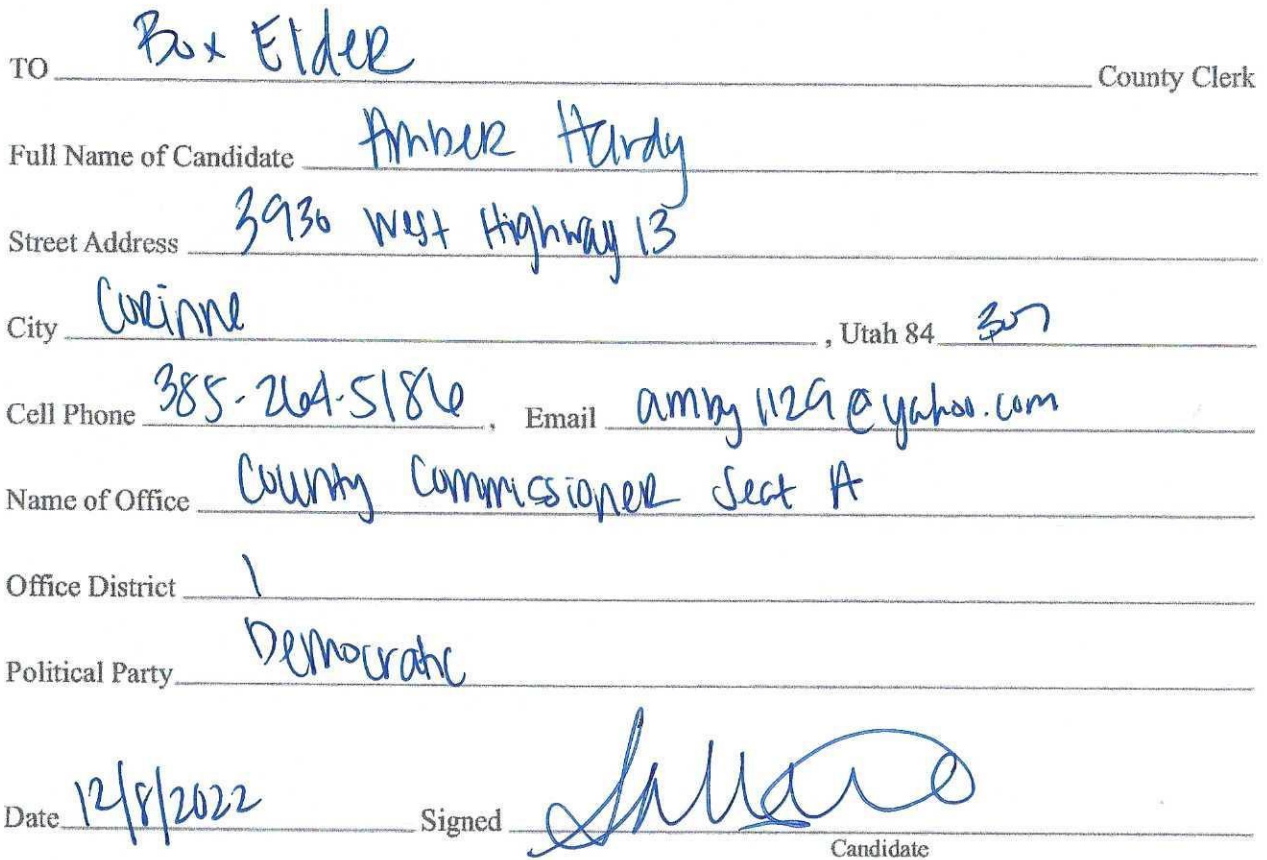 TO Box Elder County Clerk
Full Name of Candidate Amber Hardy
Street Address 3930 West Highway 13
City Corinne , Utah 84 307
Cell Phone 385-264-5186 , Email amby1129@yahoo.com
Name of Office County Commissioner Seat A
Office District 1
Political Party Democratic
Date 12/8/2022 Signed
Candidate